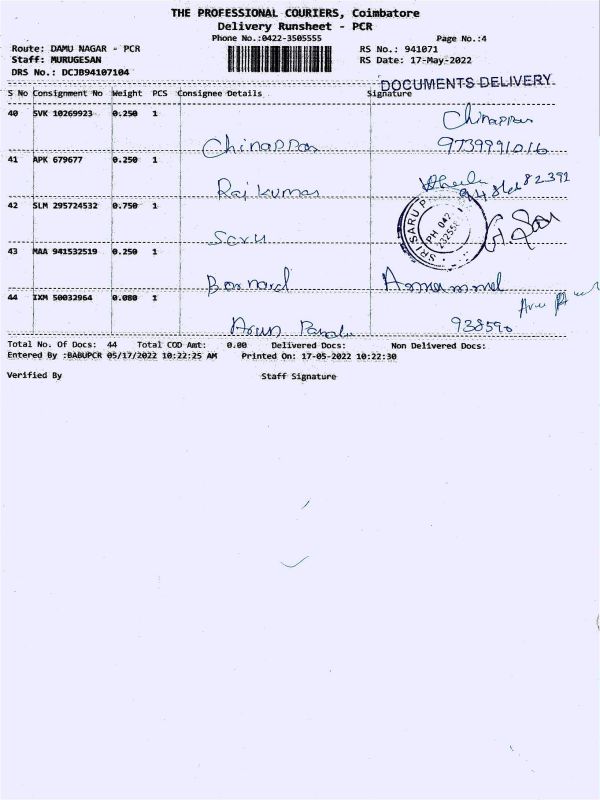 THE PROFESSIONAL COURIERS, Coimbatore
Delivery Runsheet - PCR
Phone No.:0422-3505555 Page No.:4
Route: DAMU NAGAR - PCR RS No.: 941071
Staff: MURUGESAN RS Date: 17-May-2022
DRS No.: DCJB94107104
DOCUMENTS DELIVERY
S No Consignment No Weight PCS Consignee Details Signature
40 SVK 10269923 0.250 1 Chinappan
Chinappan 9739991016
41 APK 679677 0.250 1
Raj kumar
42 SLM 295724532 0.750 1
Saru SRI SARU
43 MAA 941532519 0.250 1
Bornard
44 IXM 50032964 0.080 1
Arun 938590
Total No. Of Docs: 44 Total COD Amt: 0.00 Delivered Docs: Non Delivered Docs:
Entered By :BABUPCR 05/17/2022 10:22:25 AM Printed On: 17-05-2022 10:22:30
Verified By Staff Signature